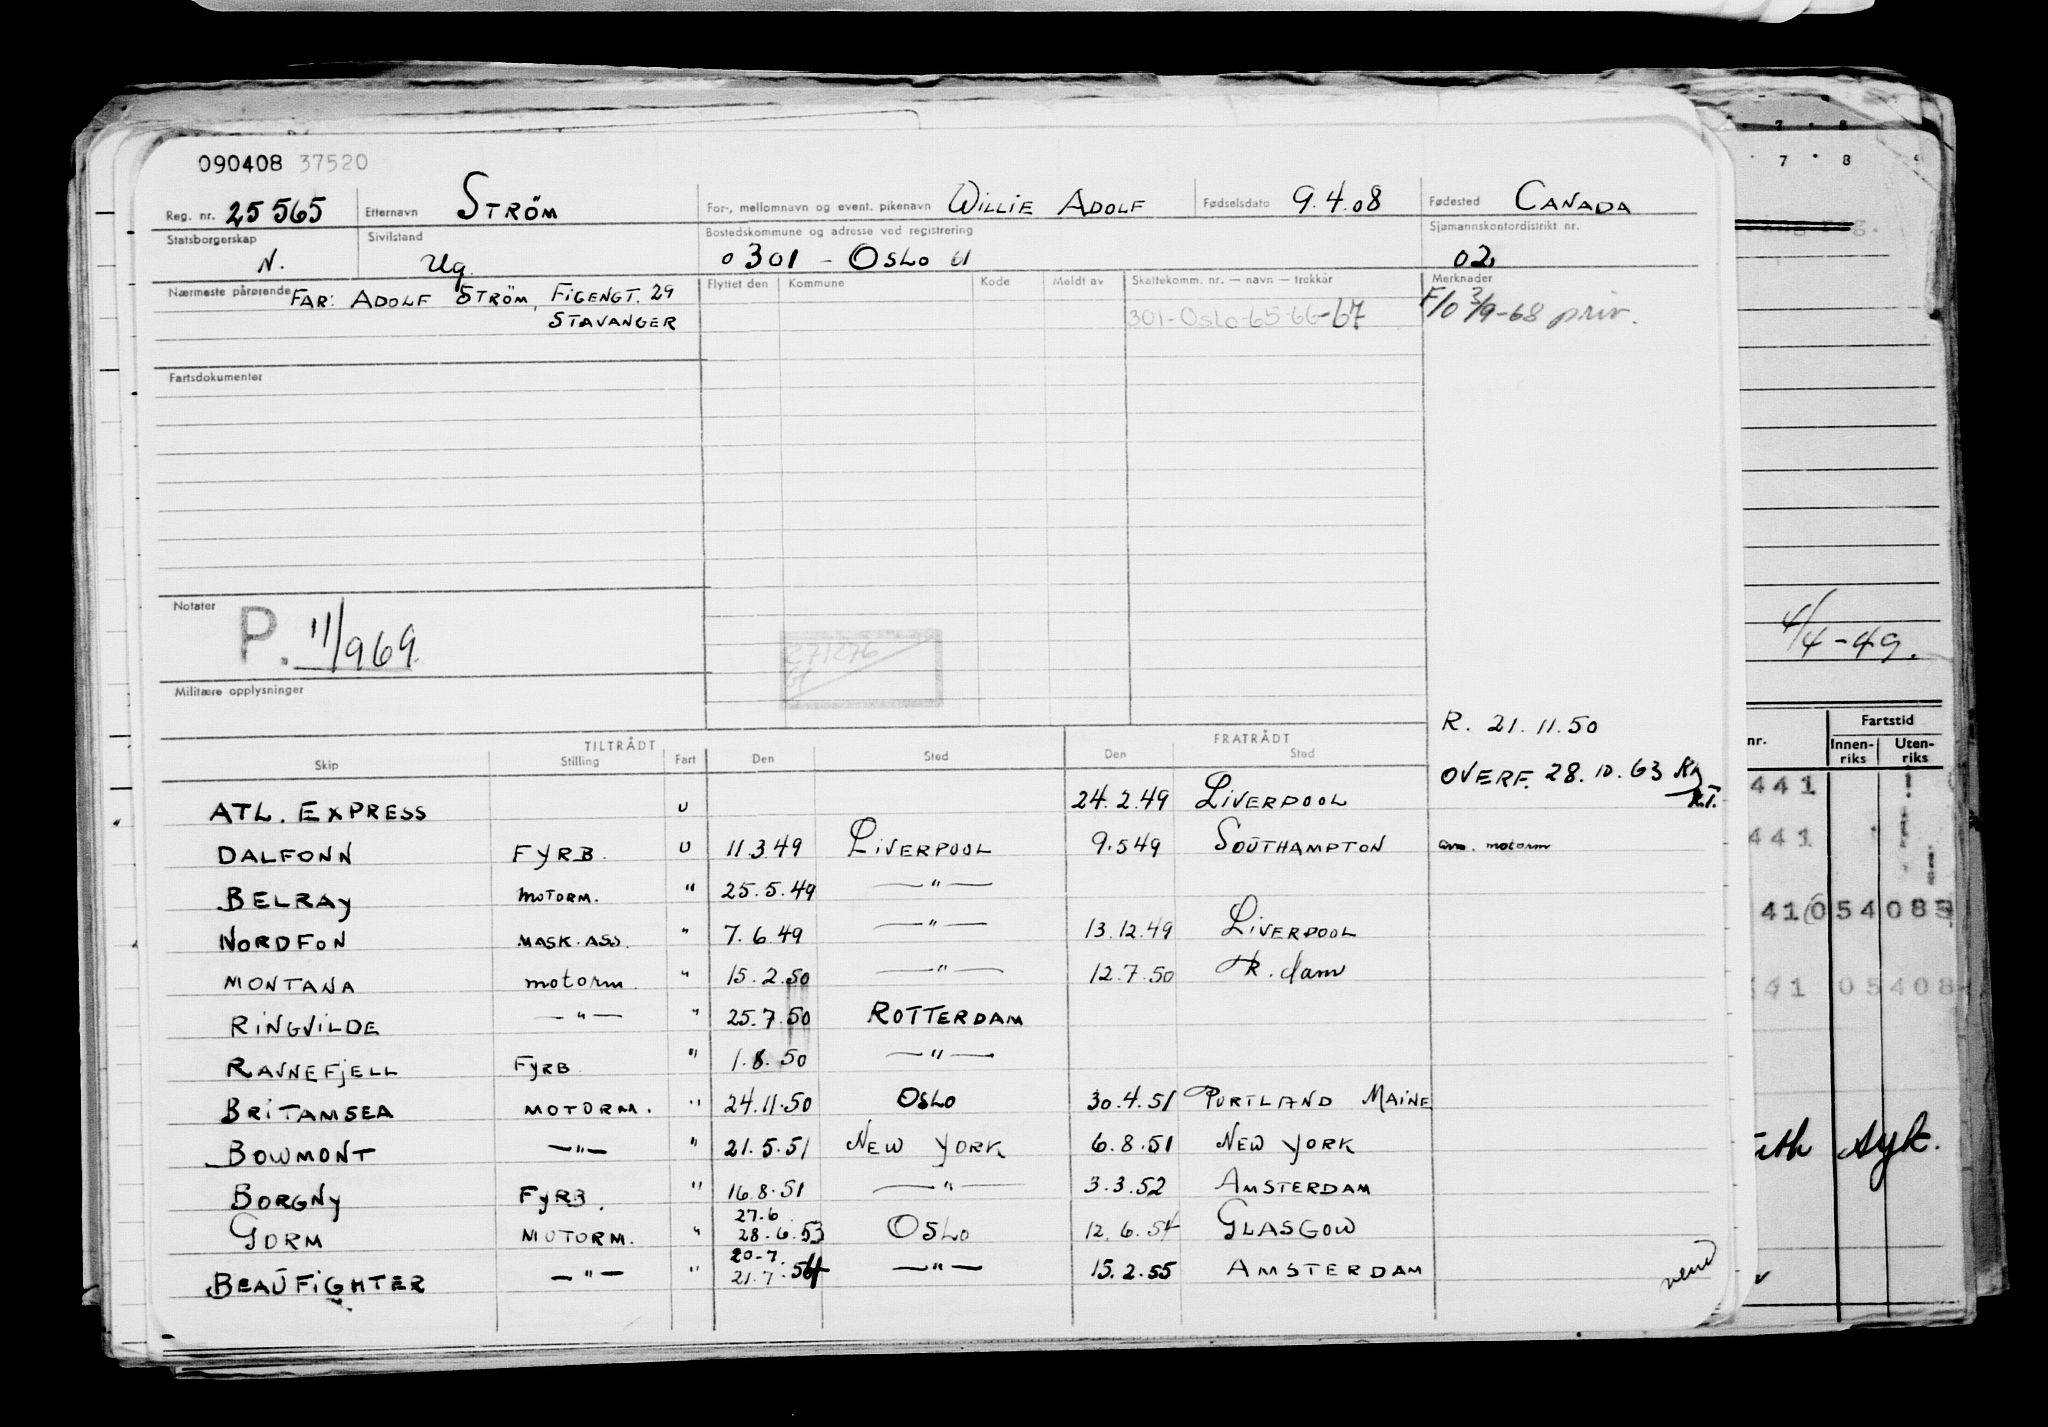 090408 37520
Reg. nr. 25 565 Etternavn STRÖM For-, mellomnavn og event. pikenavn WILLIE ADOLF Fødselsdato 9.4.08 Fødested CANADA
Statsborgerskap N. Sivilstand Ug. Bostedskommune og adresse ved registrering 0301 - OSLO Sjømannskontordistrikt nr. 02
Nærmeste pårørende FAR: ADOLF STRÖM, FIGENGT. 29 Flyttet den Kommune Kode Meldt av Skattekomm. nr. — navn — trekkår Merknader
STAVANGER 301-Oslo-65-66-67 F/O 3/9-68 priv.
Fartsdokumenter
Notater P. 11/969.
271276
4/4-49.
Militære opplysninger
R. 21.11.50
OVERF. 28.10.63
TILTRÅDT FRATRÅDT
Skip Stilling Fart Den Sted Den Sted
ATL. EXPRESS U 24.2.49 LIVERPOOL
DALFONN FYRB. U 11.3.49 LIVERPOOL 9.5.49 SOUTHAMPTON motorm
BELRAY MOTORM. " 25.5.49 —"—
NORDFON MASK.ASS. " 7.6.49 —"— 13.12.49 LIVERPOOL
MONTANA motorm. " 15.2.50 —"— 12.7.50 R.dam
RINGVILDE —"— " 25.7.50 ROTTERDAM
RAVNEFJELL FYRB " 1.8.50 —"—
BRITAMSEA MOTORM. " 24.11.50 OSLO 30.4.51 PORTLAND MAINE
BOWMONT —"— " 21.5.51 NEW YORK 6.8.51 NEW YORK
BORGNY FYRB. " 16.8.51 —"— 3.3.52 AMSTERDAM
27.6
GORM MOTORM. " 28.6.53 OSLO 12.6.54 GLASGOW
20-7
BEAUFIGHTER —"— " 21.7.54 —"— 15.2.55 AMSTERDAM
vend
nr. Fartstid
Innen-riks Uten-riks
441
441
41 054085
41 05408